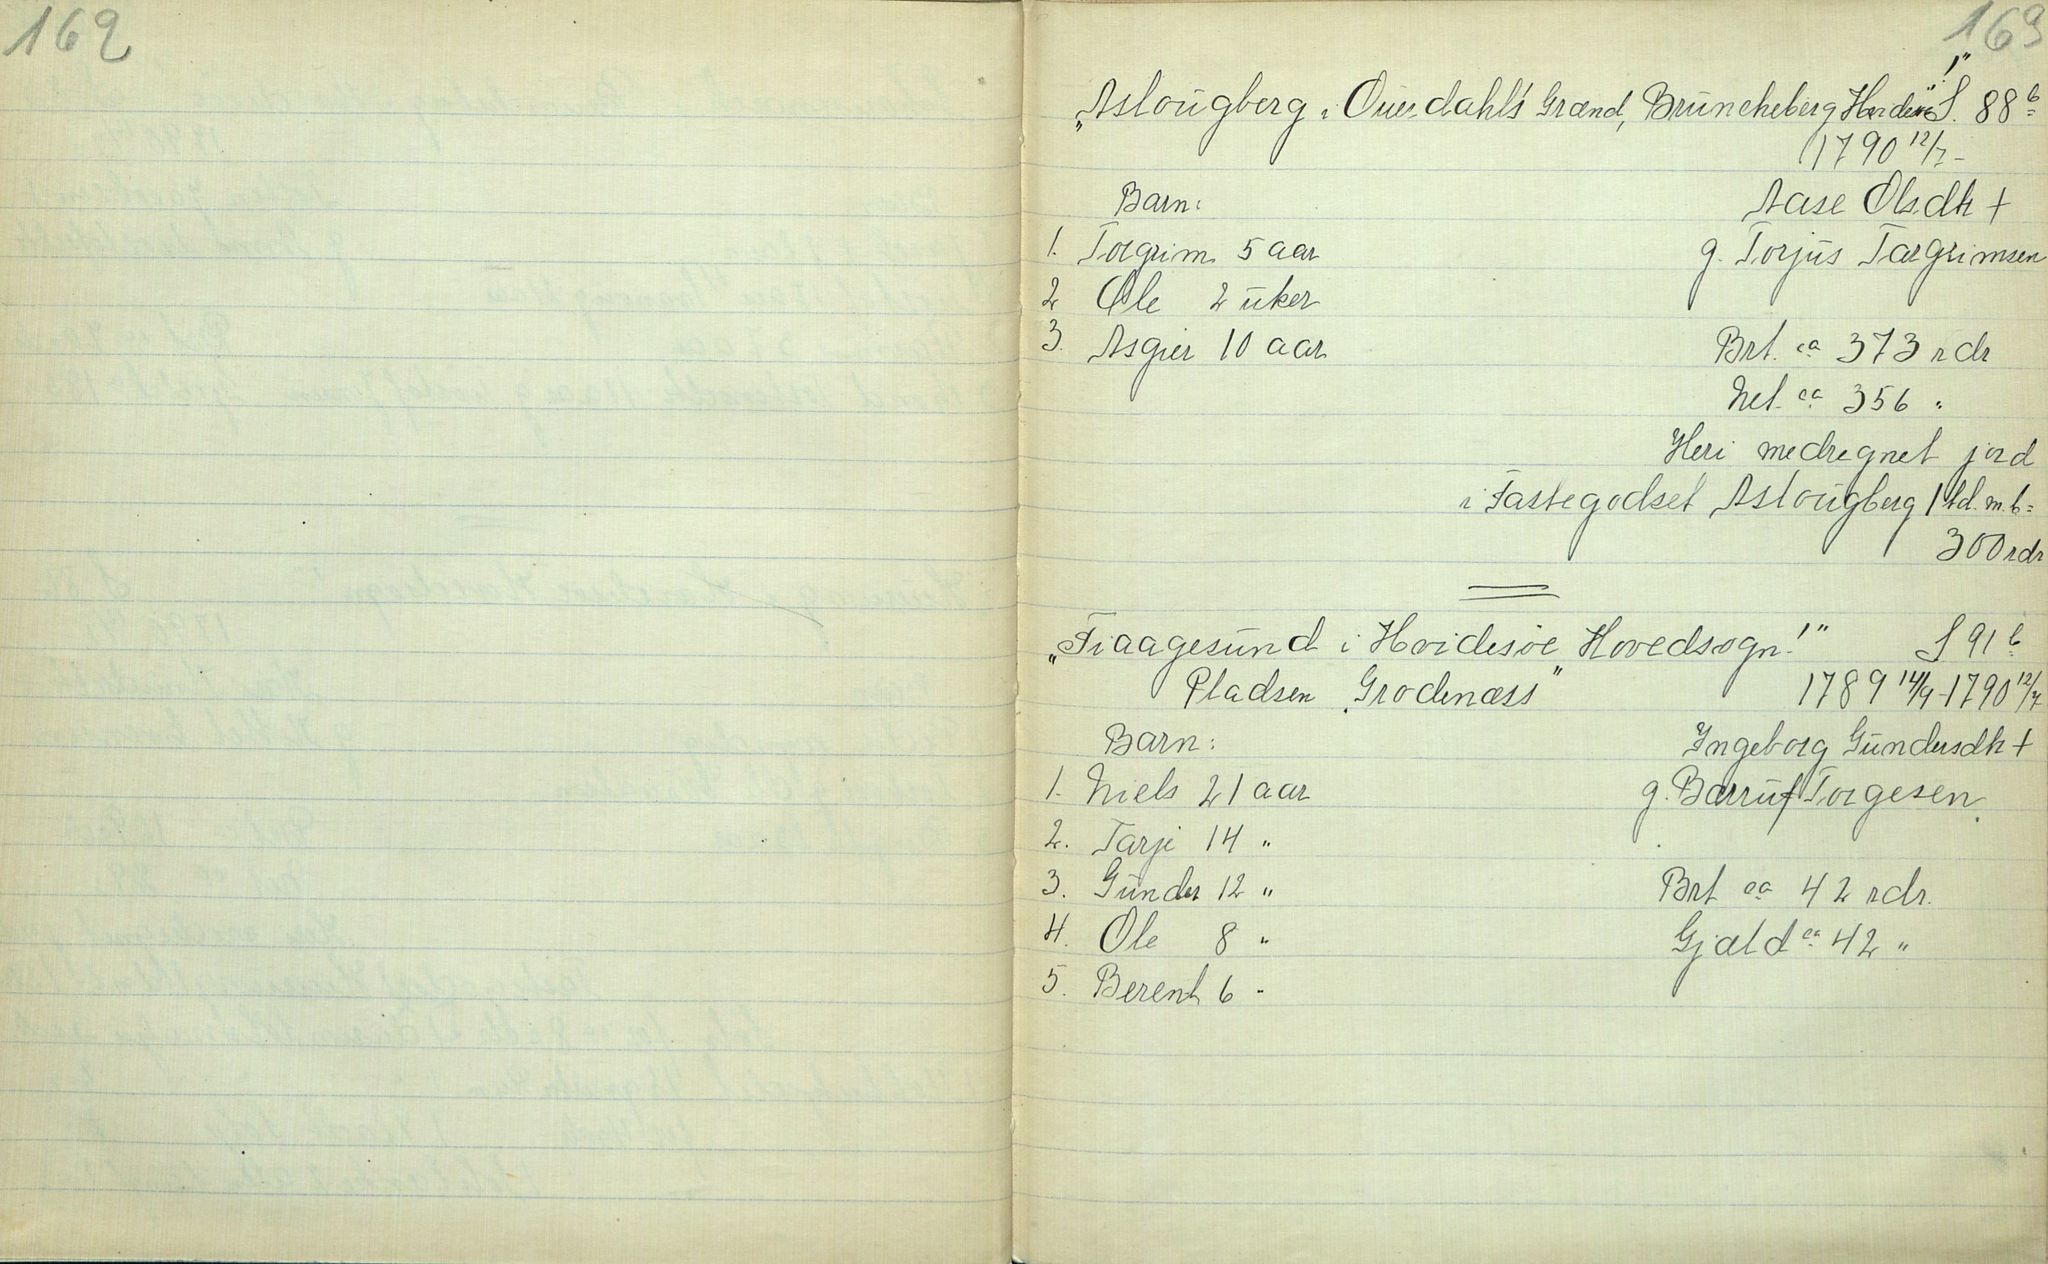 162
163
„Aslougberg i Ouerdahl's Grænd, Brüncheberg Herder"!" S. 88 b
1790 12/7 -
Barn:
Aase Olsdtr +
1. Torgrim 5 aar
g. Torjüs Targrimsen
2 Ole 2 üker
3. Asgier 10 aar
Brt. ca 373 rdr
Net. ca 356 "
Heri medregnet jord
i Fastegodset Aslougberg 1 td. m. b =
300 rdr
„Fiaagesünd i Hvidesöe Hovedsogn!" S 91 b
Pladsen „Grodenæss" 1789 14/9 - 1790 12/7
Barn:
Ingeborg Gündersdtr +
1. Niels 21 aar
g. Barruf Torgesen
2. Tarje 14 "
3. Günder 12 "
Brt ca 42 rdr.
4. Ole 8 "
Gjæld ca 42 "
5. Berent 6 "